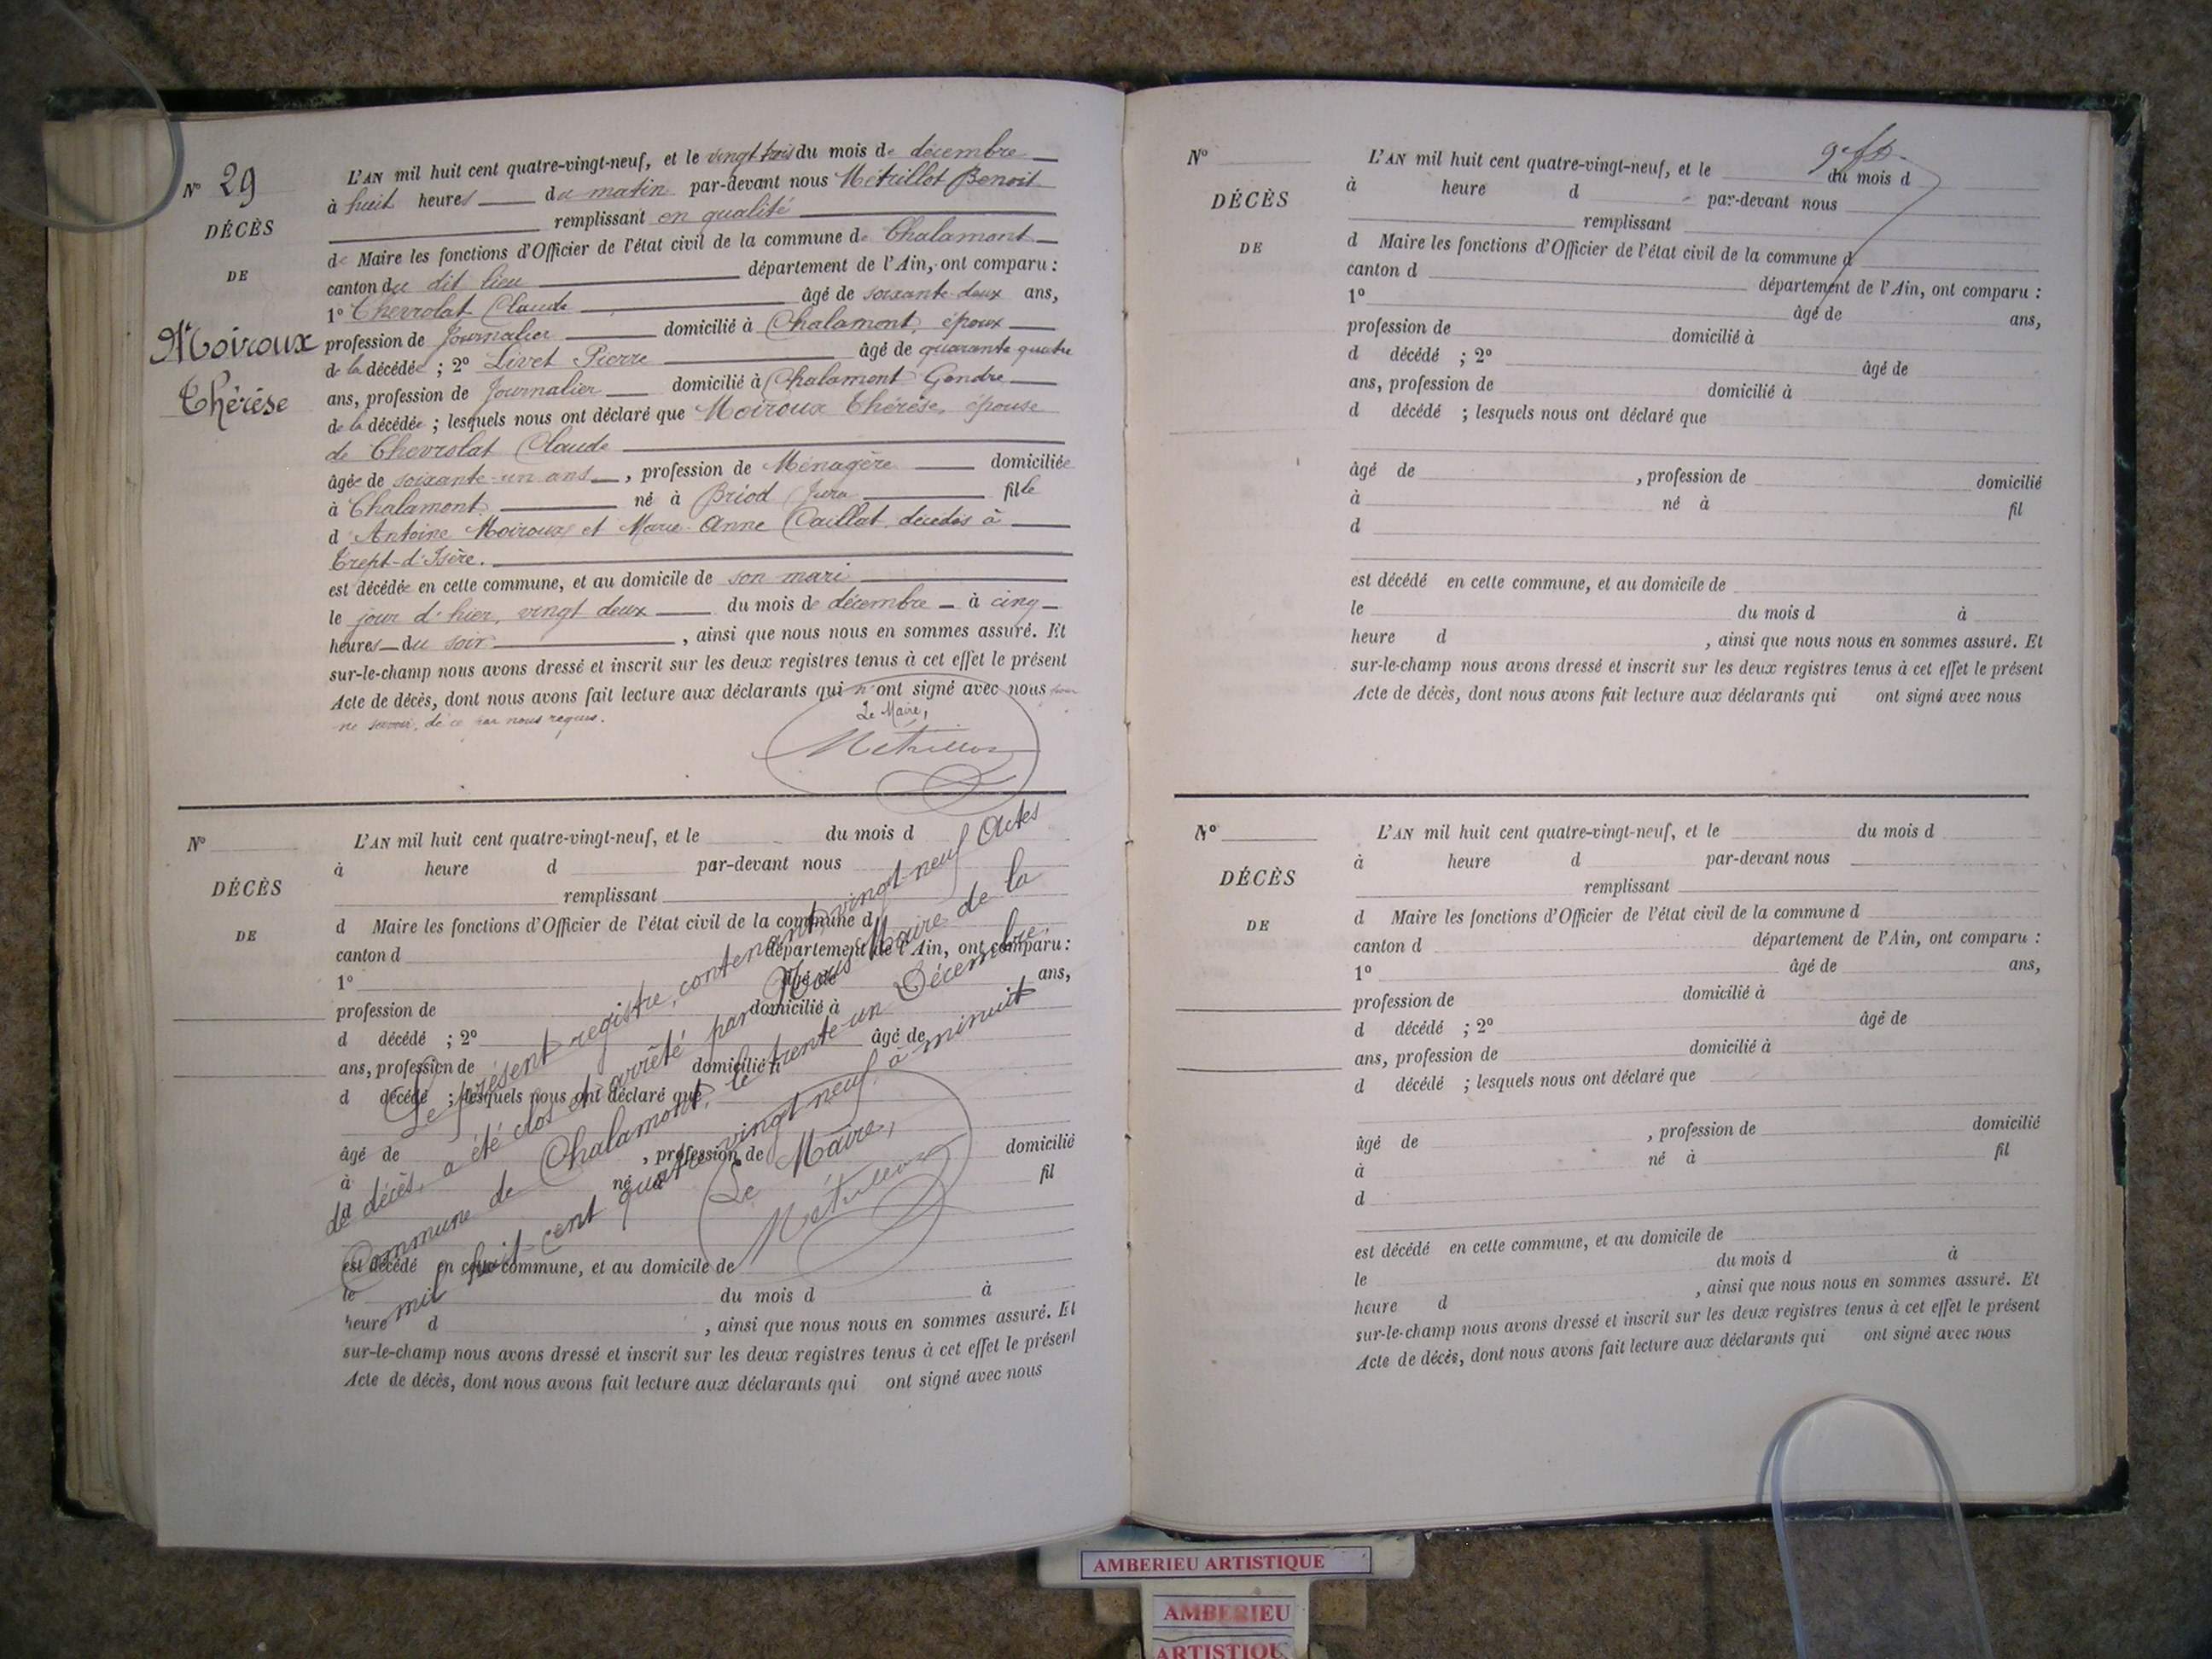 N° 29
DÉCÈS
DE
Moiroux
Thérèse
L'AN mil huit cent quatre-vingt-neuf, et le vingt trois du mois de décembre
à huit heures du matin par-devant nous Métrillot Benoit
remplissant en qualité
de Maire les fonctions d'Officier de l'état civil de la commune de Chalamont
canton du dit lieu département de l'Ain, ont comparu :
1° Chevrolat Claude âgé de soixante-deux ans,
profession de Journalier domicilié à Chalamont, époux
de la décédée ; 2° Livet Pierre âgé de quarante quatre
ans, profession de Journalier domicilié à Chalamont Gendre
de la décédée ; lesquels nous ont déclaré que Moiroux Thérèse, épouse
de Chevrolat Claude
âgée de soixante-un ans, profession de Ménagère domiciliée
à Chalamont né à Briod Jura fille
d Antoine Moiroux et Marie-Anne Caillat, décédés à
Trept-d'Isère.
est décédée en cette commune, et au domicile de son mari
le jour d'hier, vingt deux du mois de décembre à cinq
heures du soir, ainsi que nous nous en sommes assuré. Et
sur-le-champ nous avons dressé et inscrit sur les deux registres tenus à cet effet le présent
Acte de décès, dont nous avons fait lecture aux déclarants qui n'ont signé avec nous pour
ne savoir, de ce par nous requis.
Le Maire,
N°
DÉCÈS
DE
L'AN mil huit cent quatre-vingt-neuf, et le du mois d
à heure d par-devant nous
remplissant
d Maire les fonctions d'Officier de l'état civil de la commune d
canton d département de l'Ain, ont comparu :
1° âgé de ans,
profession de domicilié à
d décédé ; 2° âgé de
ans, profession de domicilié à
d décédé ; lesquels nous ont déclaré que
âgé de , profession de domicilié
à né à fil
d
est décédé en cette commune, et au domicile de
le du mois d à
heure d , ainsi que nous nous en sommes assuré. Et
sur-le-champ nous avons dressé et inscrit sur les deux registres tenus à cet effet le présent
Acte de décès, dont nous avons fait lecture aux déclarants qui ont signé avec nous
Le présent registre, contenant vingt-neuf Actes
de décès, a été clos et arrêté par Nous Maire de la
Commune de Chalamont, le trente-un Décembre,
mil huit-cent quatre vingt neuf, à minuit
Le Maire,
N°
DÉCÈS
DE
L'AN mil huit cent quatre-vingt-neuf, et le du mois d
à heure d par-devant nous
remplissant
d Maire les fonctions d'Officier de l'état civil de la commune d
canton d département de l'Ain, ont comparu :
1° âgé de ans,
profession de domicilié à
d décédé ; 2° âgé de
ans, profession de domicilié à
d décédé ; lesquels nous ont déclaré que
âgé de , profession de domicilié
à né à fil
d
est décédé en cette commune, et au domicile de
le du mois d à
heure d , ainsi que nous nous en sommes assuré. Et
sur-le-champ nous avons dressé et inscrit sur les deux registres tenus à cet effet le présent
Acte de décès, dont nous avons fait lecture aux déclarants qui ont signé avec nous
N°
DÉCÈS
DE
L'AN mil huit cent quatre-vingt-neuf, et le du mois d
à heure d par-devant nous
remplissant
d Maire les fonctions d'Officier de l'état civil de la commune d
canton d département de l'Ain, ont comparu :
1° âgé de ans,
profession de domicilié à
d décédé ; 2° âgé de
ans, profession de domicilié à
d décédé ; lesquels nous ont déclaré que
âgé de , profession de domicilié
à né à fil
d
est décédé en cette commune, et au domicile de
le du mois d à
heure d , ainsi que nous nous en sommes assuré. Et
sur-le-champ nous avons dressé et inscrit sur les deux registres tenus à cet effet le présent
Acte de décès, dont nous avons fait lecture aux déclarants qui ont signé avec nous
AMBERIEU ARTISTIQUE
AMBERIEU
ARTISTIQU